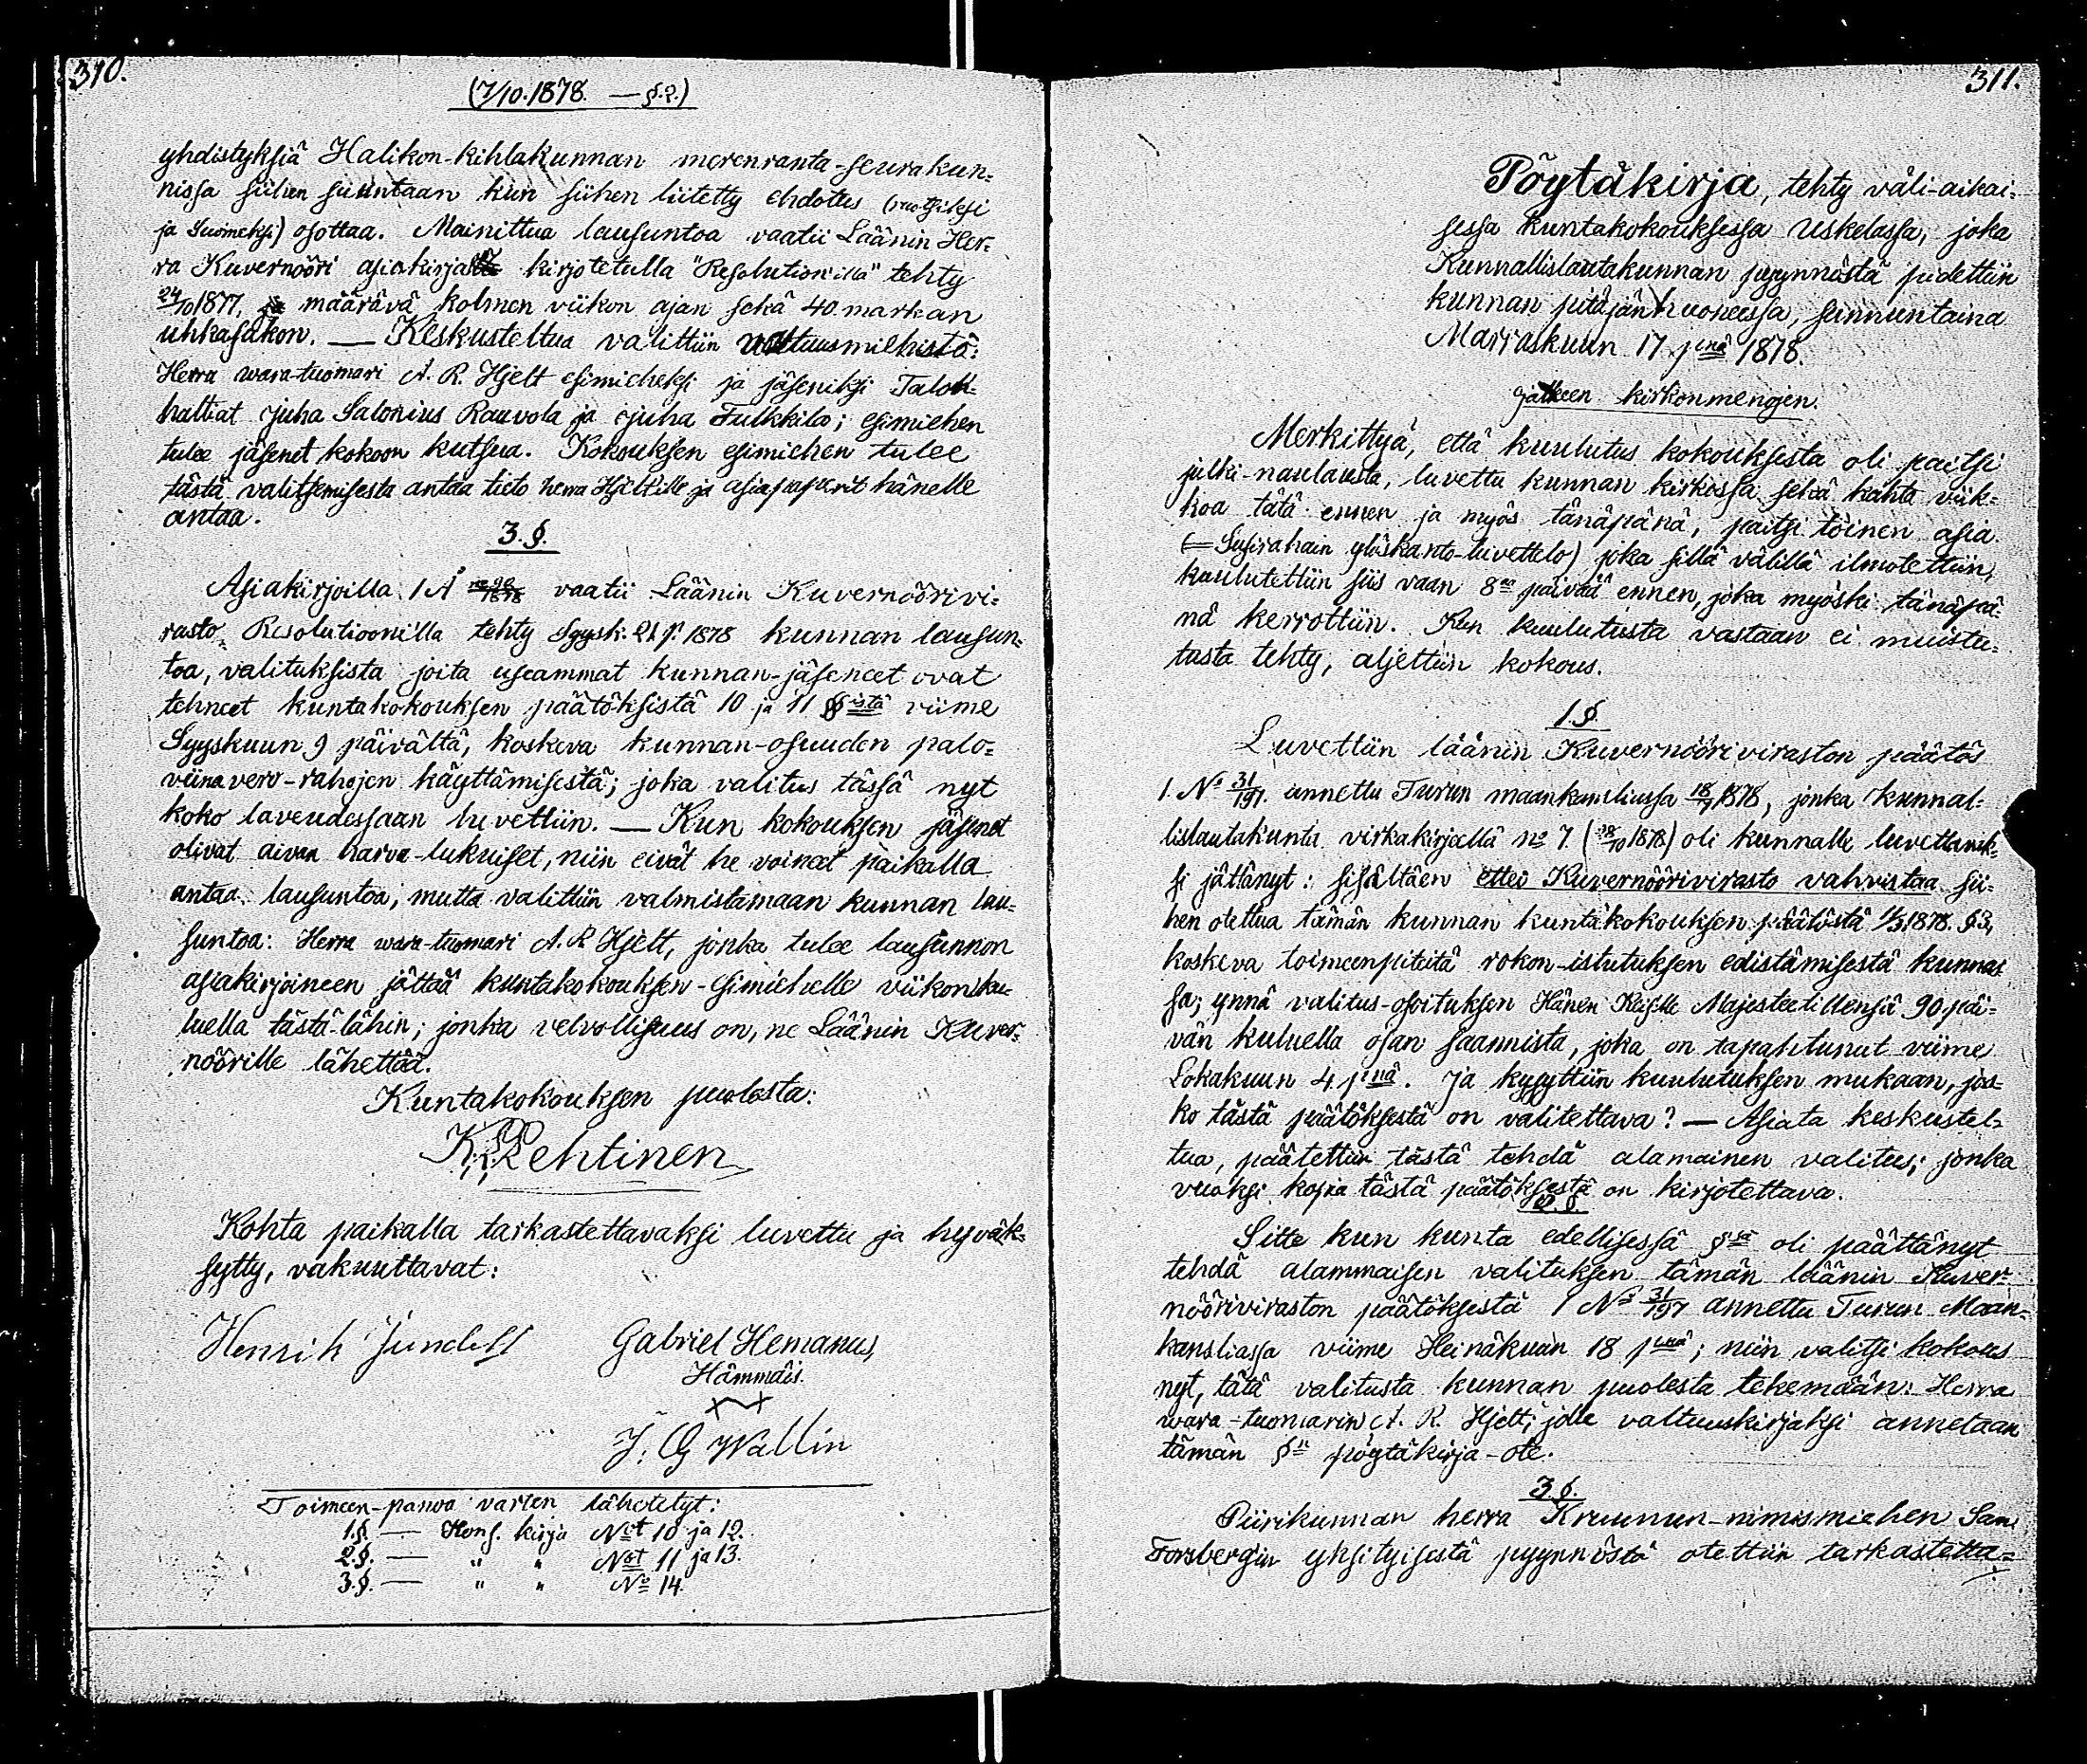 310.
(7/10.1878. — §.2.)
yhdistyksiä Halikon-kihlakunnan merenranta-seurakun-
nissa siihen suuntaan kun siihen liitetty ehdotus (ruotsiksi
ja Suomeksi) osottaa. Mainittua lausuntoa vaatii Läänin Her-
ra Kuvernööri asiakirjalle kirjotetulla "Resolution'illa" tehty
24/10 1877, määrävä kolmen viikon ajan sekä 40 markan
uhkasakon. — Keskusteltua valittiin valtuusmiehistö:
Herra wara-tuomari A. R. Hjelt esimieheksi ja jäseniksi Talon-
haltiat Juha Salonius Rauvola ja Juha Tulkkila; esimiehen
tulee jäsenet kokoon kutsua. Kokouksen esimiehen tulee
tästä valitsemisesta antaa tieto herra Hjeltille ja asiapaperit hänelle
antaa.
3.§.
Asiakirjoilla 1 A vaatii Läänin Kuvernöörivi-
rasto, Resolutioonilla tehty Syysk. 21 p. 1878 kunnan lausun-
toa, valituksista joita useammat kunnan-jäseneet ovat
tehneet kuntakokouksen päätöksistä 10 ja 11 §§istä viime
Syyskuun 9 päivältä, koskeva kunnan-osuuden palo-
viinavero-rahojen käyttämisestä; joka valitus tässä nyt
koko laveudessaan luvettiin. — Kun kokouksen jäsenet
olivat aivan harva-lukuiset, niin eivät he voineet paikalla
antaa lausuntoa; mutta valittiin valmistamaan kunnan lau-
suntoa: Herra wara-tuomari A. R Hjelt, jonka tulee lausunnon
asiakirjoineen jättää kuntakokouksen-Esimiehelle viikon ku-
luella tästä-lähin; jonka velvollisuus on, ne Läänin Kuver-
nöörille lähettää.
Kuntakokouksen puolesta:
Kohta paikalla tarkastettavaksi luvettu ja hyväk-
sytty, vakuuttavat:
Henrik Jündelt
Gabriel Hemanus,
Hämmäis.
J. G Wallin
Toimeen-panoa varten lähetetyt:
1§. — Kons. kirja Not 10 ja 12.
2§. — " " Not 11 ja 13.
3.§. — " " No 14.
311.
Pöytäkirja, tehty väli-aikai-
sessa kuntakokouksessa Uskelassa, joka
Kunnallislautakunnan pyynnöstä pidettiin
kunnan pitäjänhuoneessa, sunnuntaina
Marraskuun 17 pnä 1878.
jälkeen kirkonmenojen.
Merkittyä, että kuulutus kokouksesta oli paitsi
julki-naulausta, luvettu kunnan kirkossa sekä kahta viik-
koa tätä ennen ja myös tänäpänä, paitsi toinen asia
(= Susirahain ylöskanto-luvettelo) joka sillä välillä ilmotettiin,
kuulutettiin siis vaan 8na päivää ennen, joka myöski tänäpä-
nä kerrottiin. Kun kuulutusta vastaan ei muistu-
tusta tehty, aljettiin kokous.
1.§.
Luvettiin läänin Kuvernööriviraston päätös
1. No 31/197. annettu Turun maankansliassa 18/7 1878, jonka kunnal-
lislautakunta virkakirjallä no 7. (28/10 1878) oli kunnalle luvettavak-
si jättänyt: sisältäen ettei Kuvernöörivirasto vahvistaa sii-
hen otettua tämän kunnan kuntakokouksen päätöstä 11/3 1878. § 3,
koskeva toimeenpiteitä rokon-istutuksen edistämisestä kunnas-
sa; ynnä valitus-osoituksen Hänen Keis:lle Majesteetillensä 90 päi-
vän kuluella osan saannista, joka on tapahtunut viime
Lokakuun 4 pnä. Ja kysyttiin kuulutuksen mukaan, jos-
ko tästä päätöksestä on valitettava? — Asiata keskustel-
tua, päätettiin tästä tehdä alamainen valitus; jonka
vuoksi kopia tästä päätöksestä on kirjotettava.
2.§.
Sitte kun kunta edellisessä §sä oli päättänyt
tehdä alammaisen valituksen tämän läänin Kuver-
nööriviraston päätöksestä 1 No 31/197 annettu Turun Maan-
kansliassa viime Heinäkuun 18 pnä; niin valitsi kokous
nyt, tätä valitusta kunnan puolesta tekemään: Herra
wara-tuomarin A. R. Hjelt; jolle valtuuskirjaksi annetaan
tämän §n pöytäkirja-ote.
3.§.
Piirikunnan herra Kruunun-nimismiehen
Forsbergin yksityisestä pyynnöstä otettiin tarkastetta-